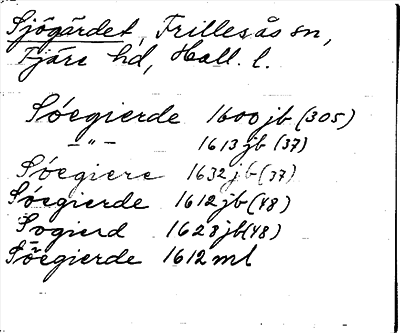 Sjögärdet, Frillesås sn,
Fjäre hd, Hall. l.
Sóegierde 1600 jb (305)
–"– 1613 jb (37)
Sóegiere 1632 jb (37)
Sóegierde 1612 jb (48)
Sogierd 1628 jb (48)
Sõegierde 1612 ml